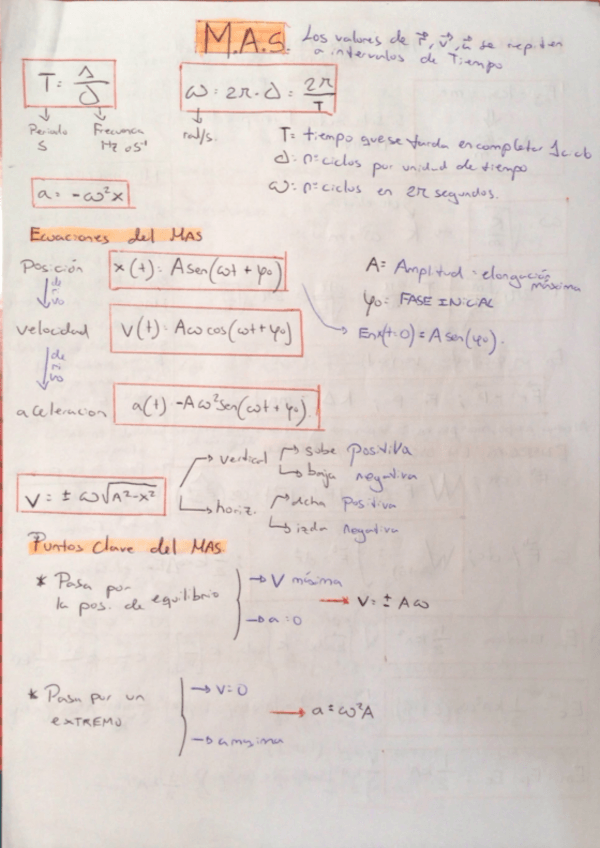 M.A.S. Los valores de r⃗, v⃗, a⃗ se repiten
a intervalos de Tiempo
T = 1/∂
Periodo
s
Frecuencia
Hz o s⁻¹
ω = 2π · ∂ = 2π/T
rad/s.
T = tiempo que se tarda en completar 1 ciclo
∂: nº ciclos por unidad de tiempo
ω: nº ciclos en 2π segundos.
a = -ω²x
Ecuaciones del MAS
Posición x(t) = A sen(ωt + φ₀)
derivo
A = Amplitud = elongación máxima
φ₀: FASE INICIAL
velocidad v(t) = Aω cos(ωt + φ₀)
derivo
En x(t=0) = A sen(φ₀).
aceleracion a(t) -Aω² sen(ωt + φ₀)
V = ± ω√A²-x²
vertical
sube positiva
baja negativa
horiz.
dcha positiva
izda negativa
Puntos clave del MAS.
* Pasa por
la pos. de equilibrio
V máxima
a = 0
V = ± Aω
* Pasa por un
EXTREMO
V = 0
a maxima
a = ω²A